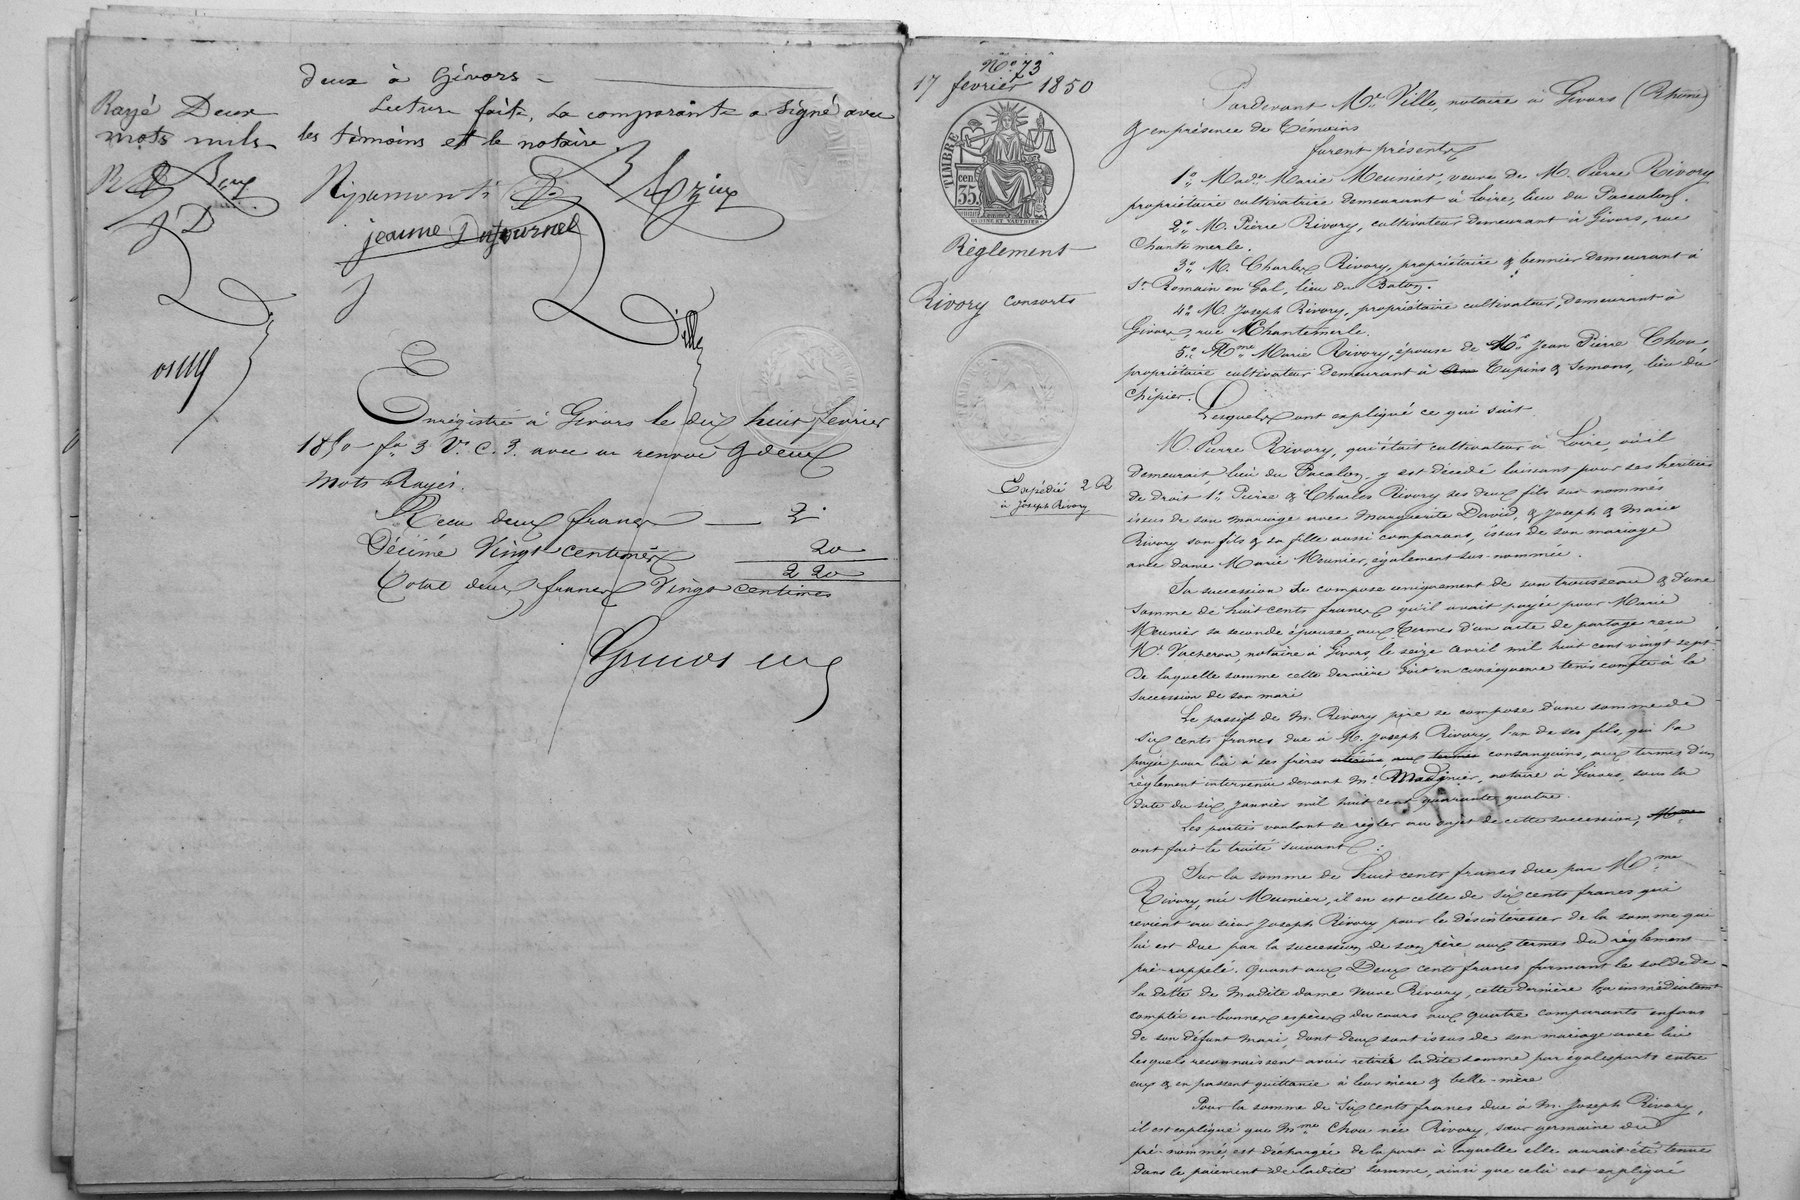 deux à Givors
Lecture faite, la comparante a signé avec
les témoins et le notaire.
Rayé Deux
mots nuls
jeanne Dufournel
Ville
Enregistré à Givors le dix huit février
1850 fo 3 Vo C. 3. avec un renvoi & deux
mots Rayés.
Reçu deux francs 2
Décime vingt centimes 20
Total deux francs vingt centimes 2 20
No 73
17 février 1850
TIMBRE
cen. 35
Règlement
Rivory consorts
Expédié 2 R
à Joseph Rivory
Pardevant Me Ville, notaire à Givors (Rhône)
& en présence de témoins
furent présents
1o Made Marie Meunier, veuve de M. Pierre Rivory
propriétaire cultivatrice demeurant à Loire, lieu du Pacalon.
2o M. Pierre Rivory, cultivateur demeurant à Givors, rue
Chantemerle.
3o M. Charles Rivory, propriétaire & bennier demeurant à
St Romain en Gal, lieu du
4o M. Joseph Rivory, propriétaire cultivateur, demeurant à
Givors, rue Chantemerle.
5o Mme Marie Rivory, épouse de Mr Jean Pierre Chou,
propriétaire cultivateur demeurant à Tupins & Semons, lieu du
Chipier.
Lesquels ont expliqué ce qui suit
M. Pierre Rivory, qui était cultivateur à Loire, où il
demeurait, lieu du Pacalon, y est décédé laissant pour ses héritiers
de droit 1o Pierre & Charles Rivory ses deux fils sus-nommés
issus de son mariage avec Marguerite David, & Joseph & Marie
Rivory son fils & sa fille aussi comparans, issus de son mariage
avec dame Marie Meunier, également sus-nommée.
Sa succession se compose uniquement de son trousseau & d'une
somme de huit cents francs, qu'il avait payée pour Marie
Meunier sa seconde épouse, aux termes d'un acte de partage reçu
Me Vacheron, notaire à Givors, le seize avril mil huit cent vingt sept
de laquelle somme cette dernière doit en conséquence tenir compte à la
succession de son mari
Le passif de M. Rivory père se compose d'une somme de
six cents francs due à M. Joseph Rivory, l'un de ses fils, qui l'a
payée pour lui à ses frères aux termes consanguins, aux termes d'un
règlement intervenu devant Me notaire à Givors, sous la
date du six janvier mil huit cent quarante quatre.
Les parties voulant se régler au sujet de cette succession,
ont fait le traité suivant :
Sur la somme de huit cents francs due par Mme
Rivory, née Meunier, il en est celle de six cents francs qui
revient au sieur Joseph Rivory pour le désintéresser de la somme qui
lui est due par la succession de son père aux termes du règlement
pré-rappelé. Quant aux Deux cents francs formant le solde de
la dette de madite dame veuve Rivory, cette dernière l'a immédiatement
comptée en bonnes espèces du cours aux quatre comparants enfans
de son défunt mari, dont deux sont issus de son mariage avec lui
lesquels reconnaissent avoir retiré ladite somme par égales parts entre
eux & en passent quittance à leur mère & belle-mère
Pour la somme de six cents francs due à M. Joseph Rivory,
il est expliqué que Mme Chou née Rivory, sœur germaine du
pré-nommé, est déchargée de la part à laquelle elle aurait été tenue
dans le paiement de ladite somme, ainsi que cela est expliqué